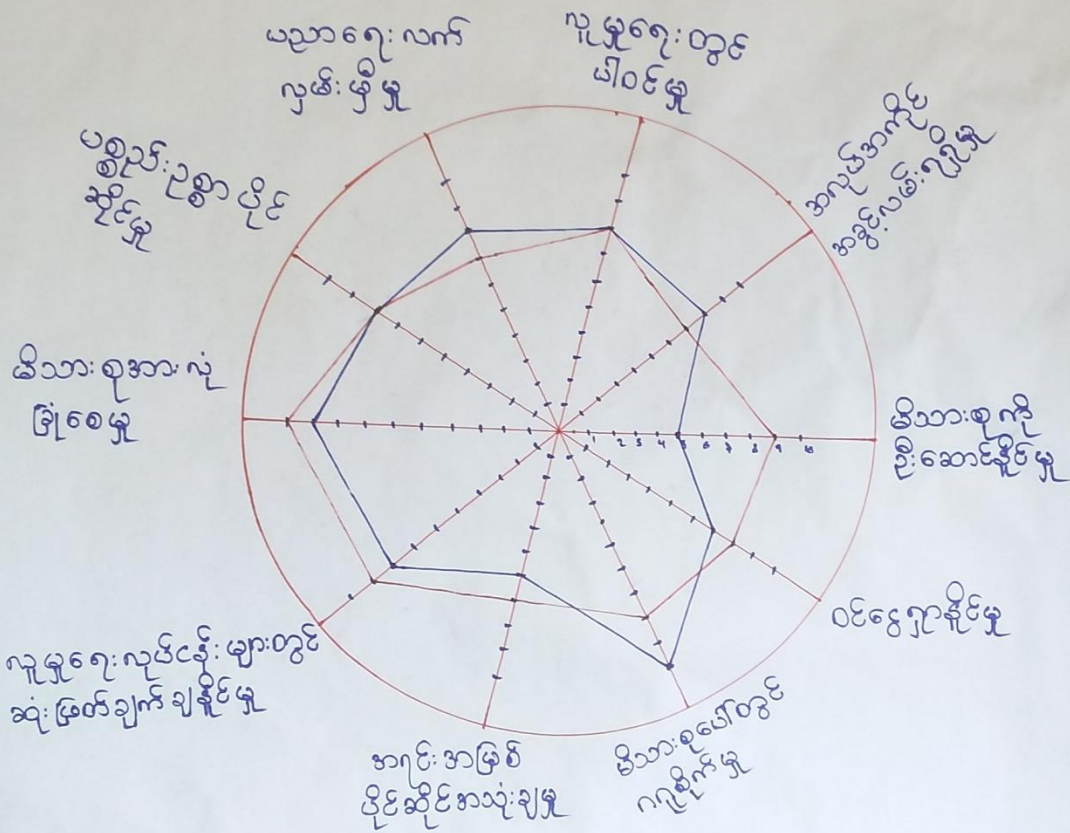 ပညာရေးလက်
လှမ်းမှီမှု
လူမှုရေးတွင်
ပါဝင်မှု
အလုပ်အကိုင်
အခွင့်လမ်းရရှိမှု
မိသားစုကို
ဦးဆောင်နိုင်မှု
ဝင်ငွေရှာနိုင်မှု
မိသားစုပေါ်တွင်
ဂရုစိုက်မှု
အရင်းအမြစ်
ပိုင်ဆိုင်အသုံးချမှု
လူမှုရေးလုပ်ငန်းများတွင်
ဆုံးဖြတ်ချက်ချနိုင်မှု
မိသားစုအားလုံ
ခြုံစေမှု
ပစ္စည်းဥစ္စာပိုင်
ဆိုင်မှု
1 2 3 4 5 6 7 8 9 10